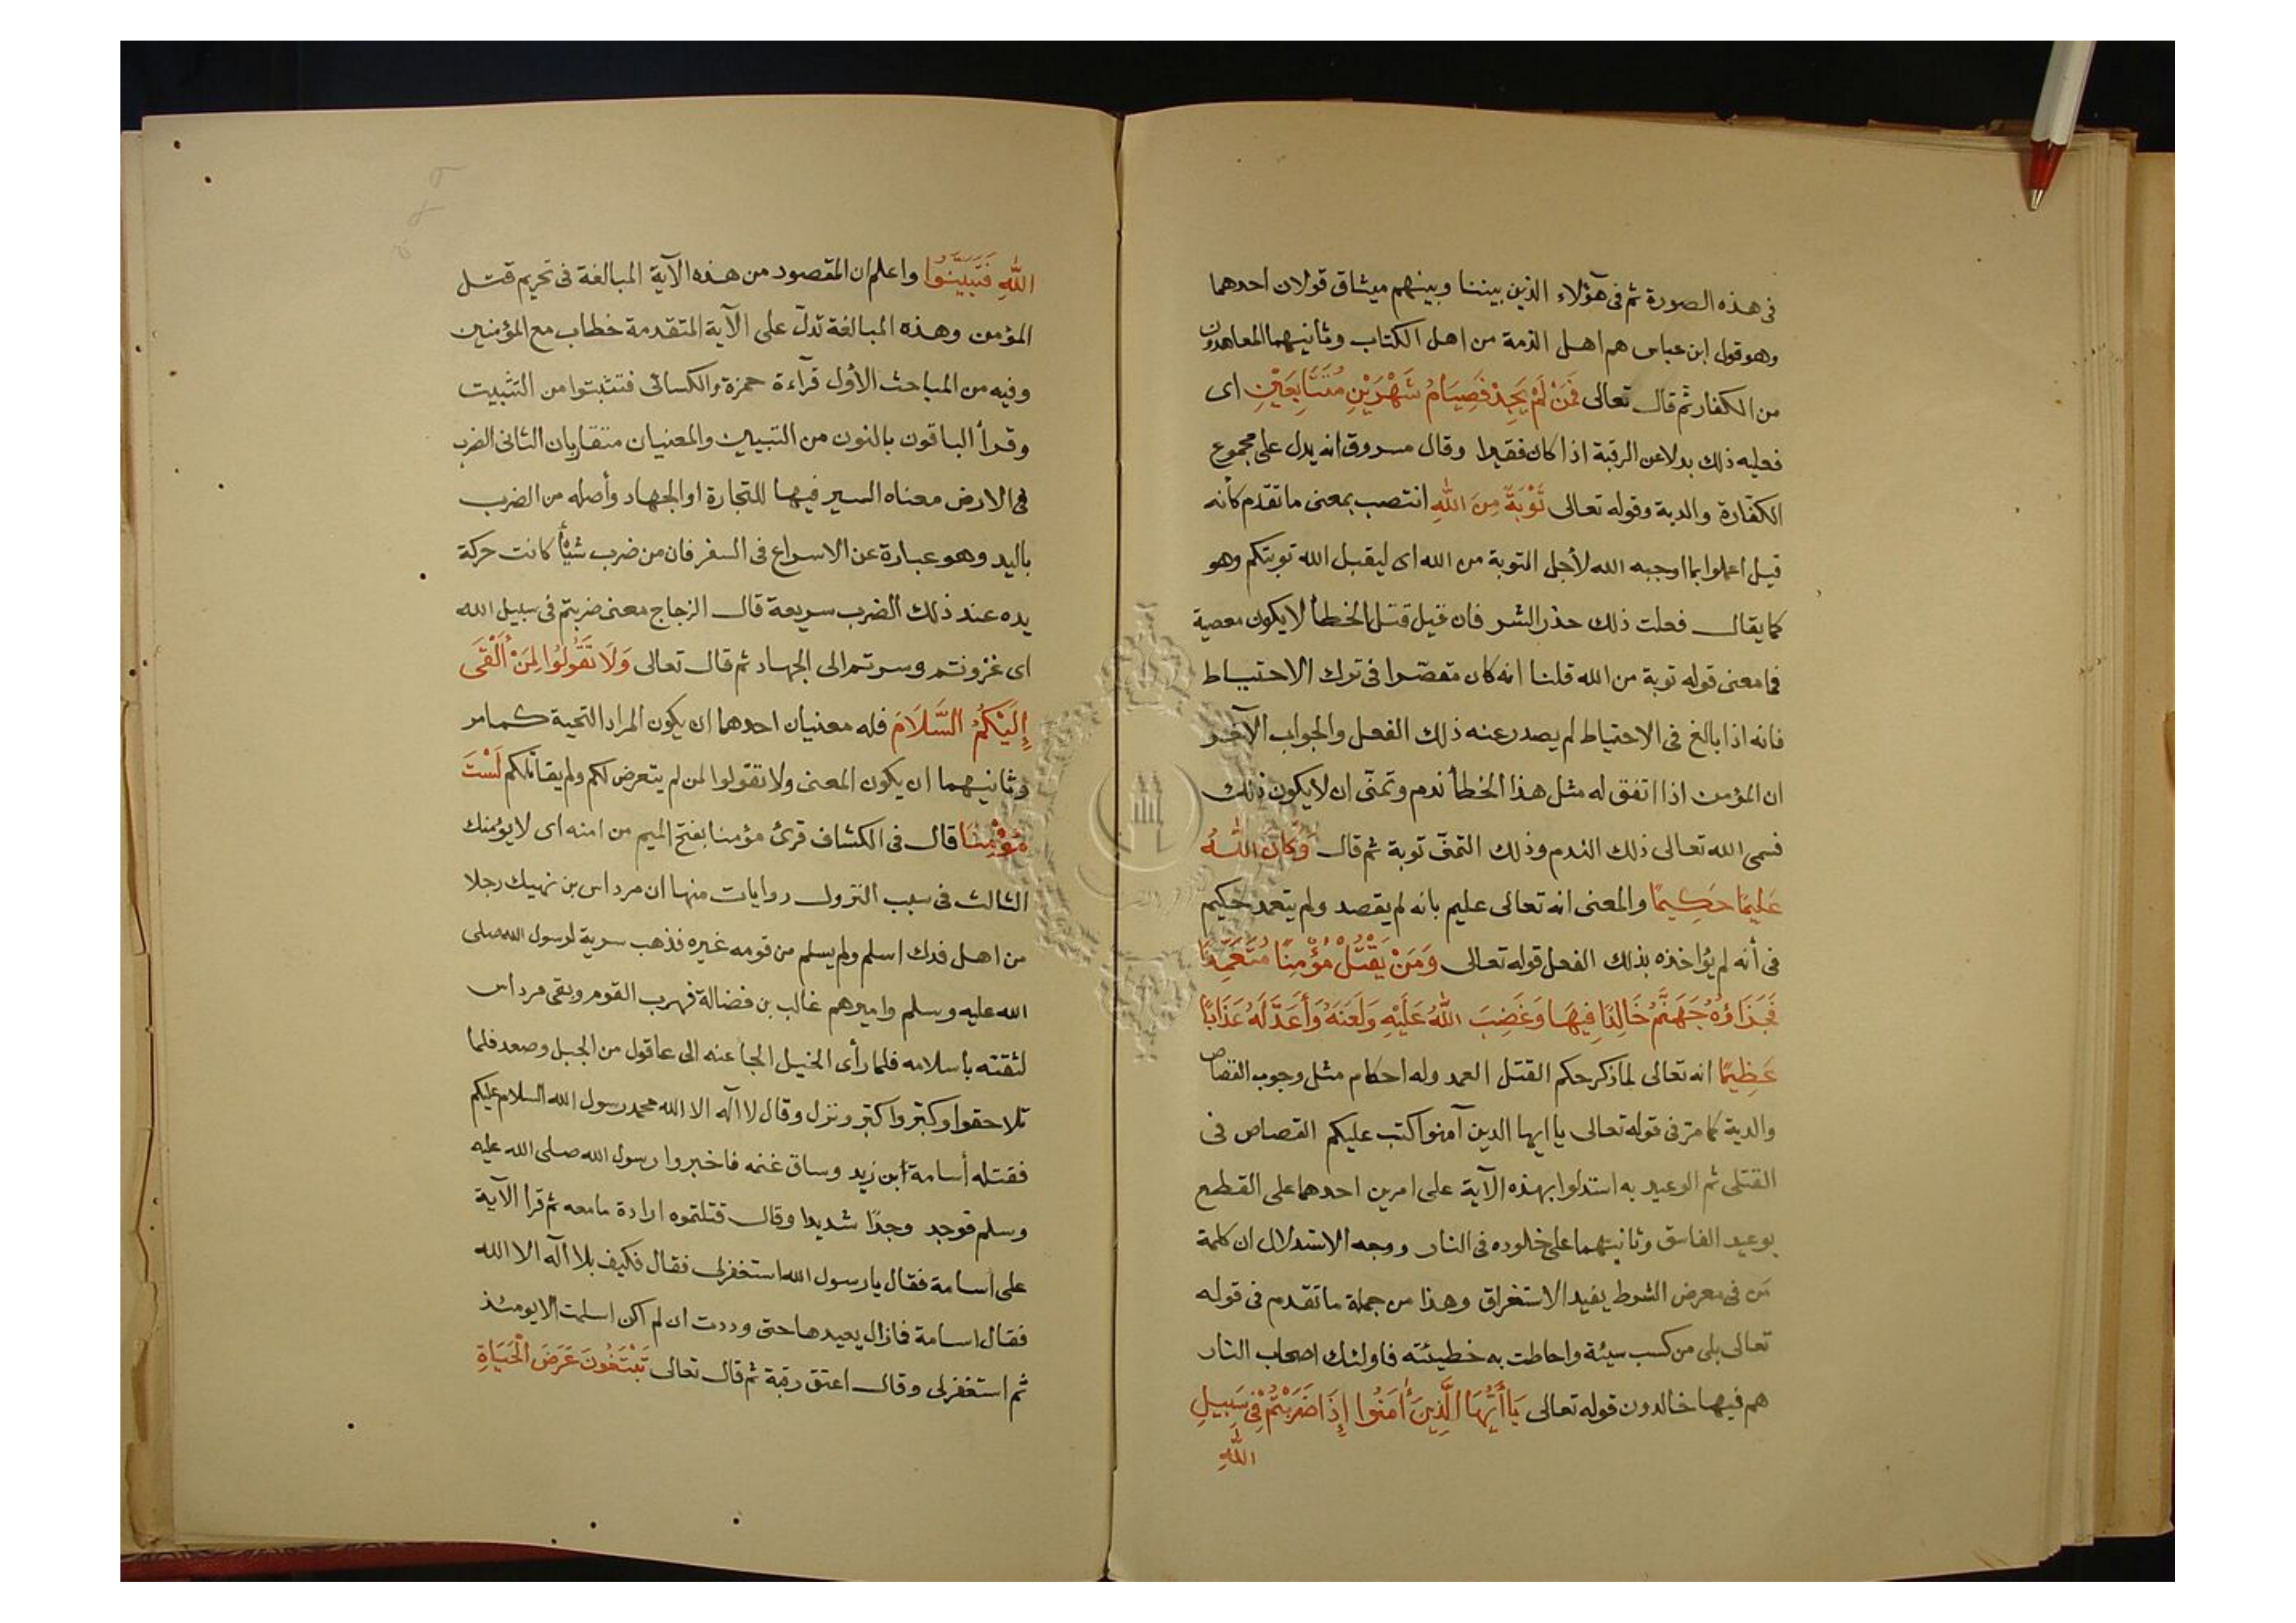 فى هذه الصورة ثم فى هؤلاء الذين بيننا وبينهم ميثاق قولان احدهما
وهو قول ابن عباس هم اهل الذمة من اهل الكتاب وثانيهما المعاهدون
من الكفار ثم قال تعالى فَمَنْ لَمْ يَجِدْ فَصِيَامُ شَهْرَيْنِ مُتَتَابِعَيْنِ اى
فعليه ذلك بدلا عن الرقبة اذا كان فقيرا وقال مسروق انه يدل على مجموع
الكفّارة والدية وقوله تعالى تَوْبَةً مِنَ اللهِ انتصب بمعنى ما تقدم كأنه
قيل اعملوا بما اوجبه الله لأجل التوبة من الله اى ليقبل الله توبتكم وهو
كما يقال فعلت ذلك حذر الشر فان قيل قتل الخطأ لا يكون معصية
فما معنى قوله توبة من الله قلنا انه كان مقصّرا فى ترك الاحتياط
فانه اذا بالغ فى الاحتياط لم يصدر عنه ذلك الفعل والجواب الآخر
ان المؤمن اذا اتفق له مثل هذا الخطأ ندم وتمنّى ان لا يكون ذلك
فسمى الله تعالى ذلك الندم وذلك التمنّى توبة ثم قال وَكَانَ اللهُ
عَلِيمًا حَكِيمًا والمعنى انه تعالى عليم بانه لم يقصد ولم يتعمد حكيم
فى أنه لم يؤاخذه بذلك الفعل قوله تعالى وَمَنْ يَقْتُلْ مُؤْمِنًا مُتَعَمِّدًا
فَجَزَاؤُهُ جَهَنَّمُ خَالِدًا فِيهَا وَغَضِبَ اللهُ عَلَيْهِ وَلَعَنَهُ وَأَعَدَّ لَهُ عَذَابًا
عَظِيمًا انه تعالى لما ذكر حكم القتل العمد وله احكام مثل وجوب القصاص
والدية كما مرّ فى قوله تعالى يا ايها الذين آمنوا كتب عليكم القصاص فى
القتلى ثم الوعيد به استدلوا بهذه الآية على امرين احدهما على القطع
بوعيد الفاسق وثانيهما على خلوده فى النار ووجه الاستدلال ان كلمة
مَن فى معرض الشرط يفيد الاستغراق وهذا من جملة ما تقدم فى قوله
تعالى بلى من كسب سيئة واحاطت به خطيئته فاولئك اصحاب النار
هم فيها خالدون قوله تعالى يَا أَيُّهَا الَّذِينَ أٰمَنُوا إِذَا ضَرَبْتُمْ فِى سَبِيلِ
اللهِ
اللهِ فَتَبَيَّنُوا واعلم ان المقصود من هذه الآية المبالغة فى تحريم قتل
المؤمن وهذه المبالغة تدلّ على الآية المتقدمة خطاب مع المؤمنين
وفيه من المباحث الأول قرآءة حمزة والكسائى فتثبتوا من التثبيت
وقرأ الباقون بالنون من التبيين والمعنيان متقاربان الثانى الضرب
فى الارض معناه السير فيها للتجارة او الجهاد وأصله من الضرب
باليد وهو عبارة عن الاسراع فى السفر فان من ضرب شيْأً كانت حركة
يده عند ذلك الضرب سريعة قال الزجاج معنى ضربتم فى سبيل الله
اى غزوتم وسرتم الى الجهاد ثم قال تعالى وَلَا تَقُولُوا لِمَنْ أَلْقَى
إِلَيْكُمُ السَّلَامَ فله معنيان احدهما ان يكون المراد التحية كما مر
وثانيهما ان يكون المعنى ولا تقولوا لمن لم يتعرض لكم ولم يقاتلكم لَسْتَ
مُؤْمِنًا قال فى الكشاف قرئ مؤمنا بفتح الميم من امنه اى لا يؤمنك
الثالث فى سبب النزول روايات منها ان مرداس بن نهيك رجلا
من اهل فدك اسلم ولم يسلم من قومه غيره فذهب سرية لرسول الله صلى
الله عليه وسلم واميرهم غالب بن فضالة فهرب القوم وبقى مرداس
لثقته باسلامه فلما رأى الخيل الجا عنه الى عاقول من الجبل وصعد فلما
تلاحقوا وكبّروا كبّر ونزل وقال لا اله الا الله محمد رسول الله السلام عليكم
فقتله أسامة ابن زيد وساق غنمه فاخبروا رسول الله صلى الله عليه
وسلم فوجد وجدًا شديدا وقال قتلتموه ارادة ما معه ثم قرأ الآية
على اسامة فقال يا رسول الله استغفر لى فقال فكيف بلا اله الا الله
فقال اسامة فازال يعيدها حتى وددت ان لم اكن اسلمت الا يومئذ
ثم استغفر لى وقال اعتق رقبة ثم قال تعالى تَبْتَغُونَ عَرَضَ الْحَيَاةِ